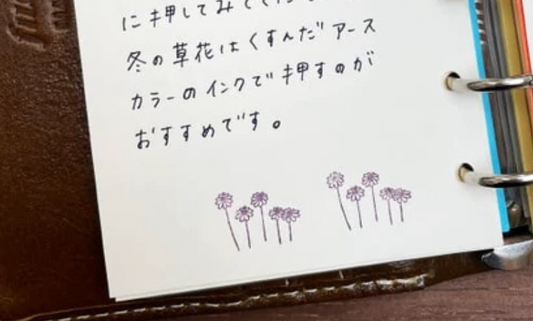 に押してみてくだ
冬の草花はくすんだアース
カラーのインクで押すのが
おすすめです。